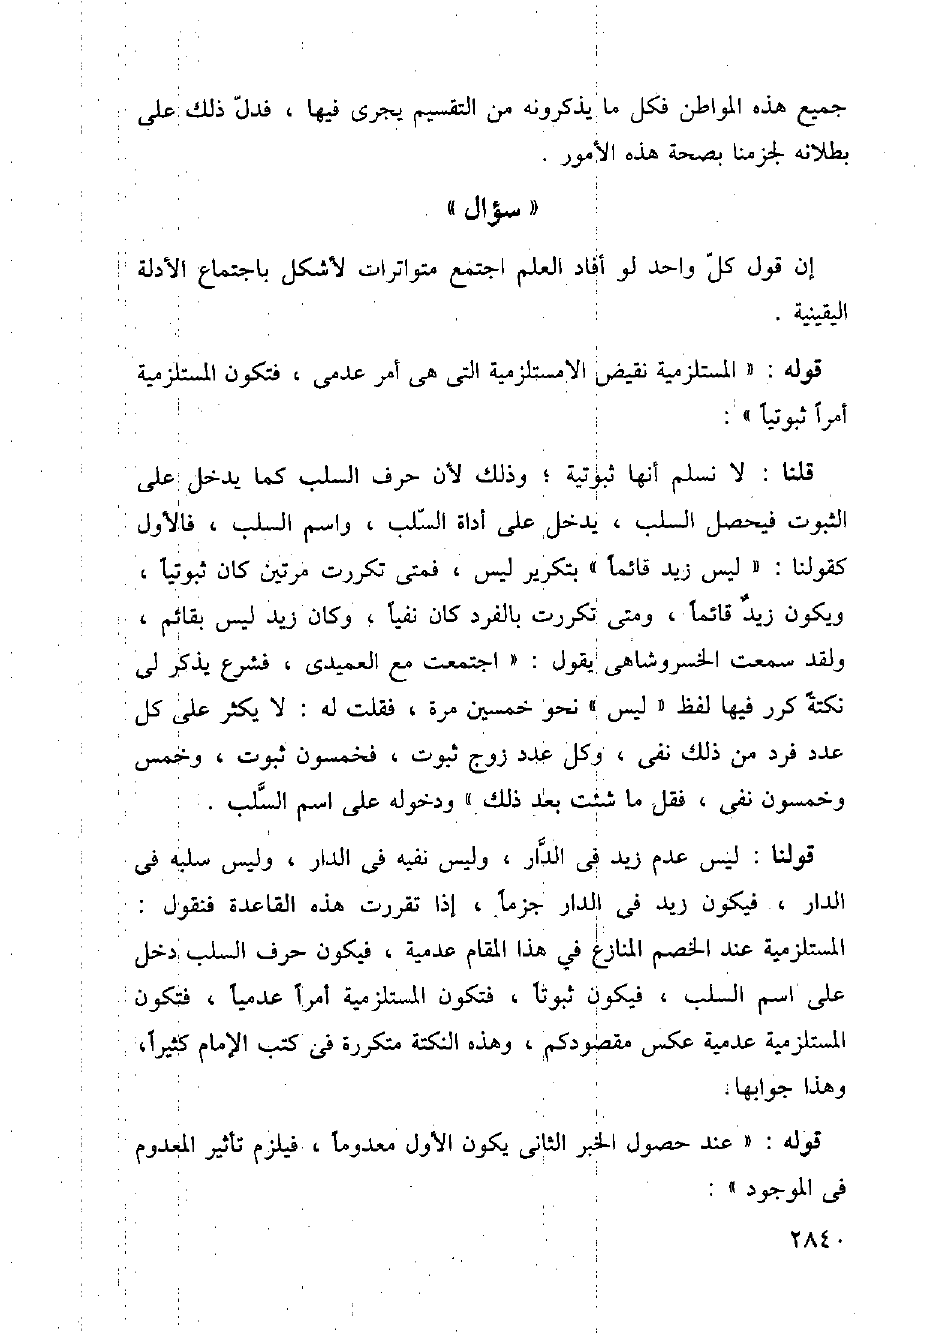 جميع هذه المواطن فكل ما يذكرونه من التقسيم يجرى فيها ، فدلّ ذلك على
بطلانه لجزمنا بصحة هذه الأمور .
« سؤال »
إن قول كلّ واحد لو أفاد العلم اجتمع متواترات لأشكل باجتماع الأدلة
اليقينية .
قوله : « المستلزمية نقيض الامستلزمية التى هى أمر عدمى ، فتكون المستلزمية
أمراً ثبوتياً » :
قلنا : لا نسلم أنها ثبوتية ؛ وذلك لأن حرف السلب كما يدخل على
الثبوت فيحصل السلب ، يدخل على أداة السّلب ، واسم السلب ، فالأول
كقولنا : « ليس زيد قائماً » بتكرير ليس ، فمتى تكررت مرتين كان ثبوتياً ،
ويكون زيدٌ قائماً ، ومتى تكررت بالفرد كان نفياً ، وكان زيد ليس بقائم ،
ولقد سمعت الخسروشاهى يقول : « اجتمعت مع العميدى ، فشرع يذكر لى
نكتةً كرر فيها لفظ « ليس » نحو خمسين مرة ، فقلت له : لا يكثر على كل
عدد فرد من ذلك نفى ، وكل عدد زوج ثبوت ، فخمسون ثبوت ، وخمس
وخمسون نفى ، فقل ما شئت بعد ذلك » ودخوله على اسم السَّلب .
قولنا : ليس عدم زيد فى الدَّار ، وليس نفيه فى الدار ، وليس سلبه فى
الدار ، فيكون زيد فى الدار جزماً ، إذا تقررت هذه القاعدة فنقول :
المستلزمية عند الخصم المنازع في هذا المقام عدمية ، فيكون حرف السلب دخل
على اسم السلب ، فيكون ثبوتاً ، فتكون المستلزمية أمراً عدمياً ، فتكون
المستلزمية عدمية عكس مقصودكم ، وهذه النكتة متكررة فى كتب الإمام كثيراً،
وهذا جوابها.
قوله : « عند حصول الخبر الثانى يكون الأول معدوماً ، فيلزم تأثير المعدوم
فى الموجود » :
٢٨٤٠